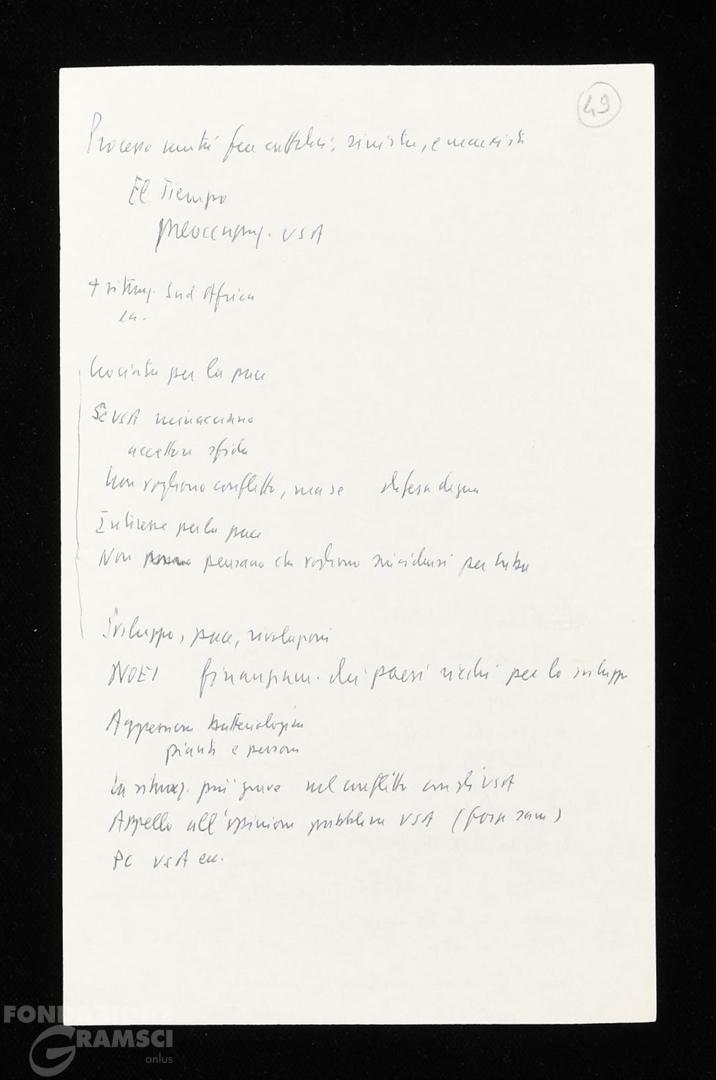 49
Processo unità fra cattolici, sinistra, e marxisti
El Tiempo
preoccupaz. USA
+ situaz. Sud Africa
ecc.
Crociata per la pace
Se USA minacciano
accettare sfida
Non vogliono conflitto, ma se difesa degna
Interesse per la pace
Non pensano che vogliono suicidarsi per Cuba
Sviluppo, pace, rivoluzioni
NOEI finanziam. dei paesi ricchi per lo sviluppo
Aggressione batteriologica
piante e persone
La situaz. più grave nel conflitto con gli USA
Appello all'opinione pubblica USA (forze sane)
PC USA ecc.
FONDAZIONE
GRAMSCI
onlus